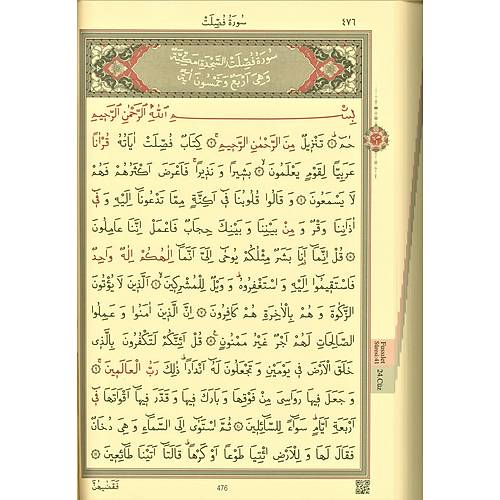 ٤٧٦
سُورَةُ فُصِّلَتْ
سُورَةُ فُصِّلَتْ اَلسَّجْدَةِ مَكِّيَّةٌ
وَهِيَ اَرْبَعٌ وَخَمْسُونَ اٰيَةً
بِسْمِ اللّٰهِ الرَّحْمٰنِ الرَّحِيمِ
حٰمٓ ۝ تَنْزِيلٌ مِنَ الرَّحْمٰنِ الرَّحِيمِ ۝ كِتَابٌ فُصِّلَتْ اٰيَاتُهُ قُرْاٰنًا
عَرَبِيًّا لِقَوْمٍ يَعْلَمُونَ ۝ بَشِيرًا وَ نَذِيرًا فَاَعْرَضَ اَكْثَرُهُمْ فَهُمْ
لَا يَسْمَعُونَ ۝ وَ قَالُوا قُلُوبُنَا فٓى اَكِنَّةٍ مِمَّا تَدْعُونَٓا اِلَيْهِ وَ فٓى
اٰذَانِنَا وَقْرٌ وَ مِنْ بَيْنِنَا وَ بَيْنِكَ حِجَابٌ فَاعْمَلْ اِنَّنَا عَامِلُونَ
۝ قُلْ اِنَّمَٓا اَنَا بَشَرٌ مِثْلُكُمْ يُوحٰٓى اِلَىَّ اَنَّمَٓا اِلٰهُكُمْ اِلٰهٌ وَاحِدٌ
فَاسْتَقِيمُٓوا اِلَيْهِ وَ اسْتَغْفِرُوهُ وَ وَيْلٌ لِلْمُشْرِكِينَ ۝ اَلَّذِينَ لَا يُؤْتُونَ
الزَّكٰوةَ وَ هُمْ بِالْاٰخِرَةِ هُمْ كَافِرُونَ ۝ اِنَّ الَّذِينَ اٰمَنُوا وَ عَمِلُوا
الصَّالِحَاتِ لَهُمْ اَجْرٌ غَيْرُ مَمْنُونٍ ۝ قُلْ اَئِنَّكُمْ لَتَكْفُرُونَ بِالَّذِى
خَلَقَ الْاَرْضَ فِى يَوْمَيْنِ وَ تَجْعَلُونَ لَهُٓ اَنْدَادًا ذٰلِكَ رَبُّ الْعَالَمِينَ ۝
وَ جَعَلَ فِيهَا رَوَاسِىَ مِنْ فَوْقِهَا وَ بَارَكَ فِيهَا وَ قَدَّرَ فِيهَٓا اَقْوَاتَهَا فٓى
اَرْبَعَةِ اَيَّامٍ سَوَٓاءً لِلسَّٓائِلِينَ ۝ ثُمَّ اسْتَوٰٓى اِلَى السَّمَٓاءِ وَ هِىَ دُخَانٌ
فَقَالَ لَهَا وَ لِلْاَرْضِ ائْتِيَا طَوْعًا اَوْ كَرْهًا قَالَتَٓا اَتَيْنَا طَٓائِعِينَ ۝
Fussılet
Sûresi 41
24.Cüz
476
فَقَضٰيهُنَّ